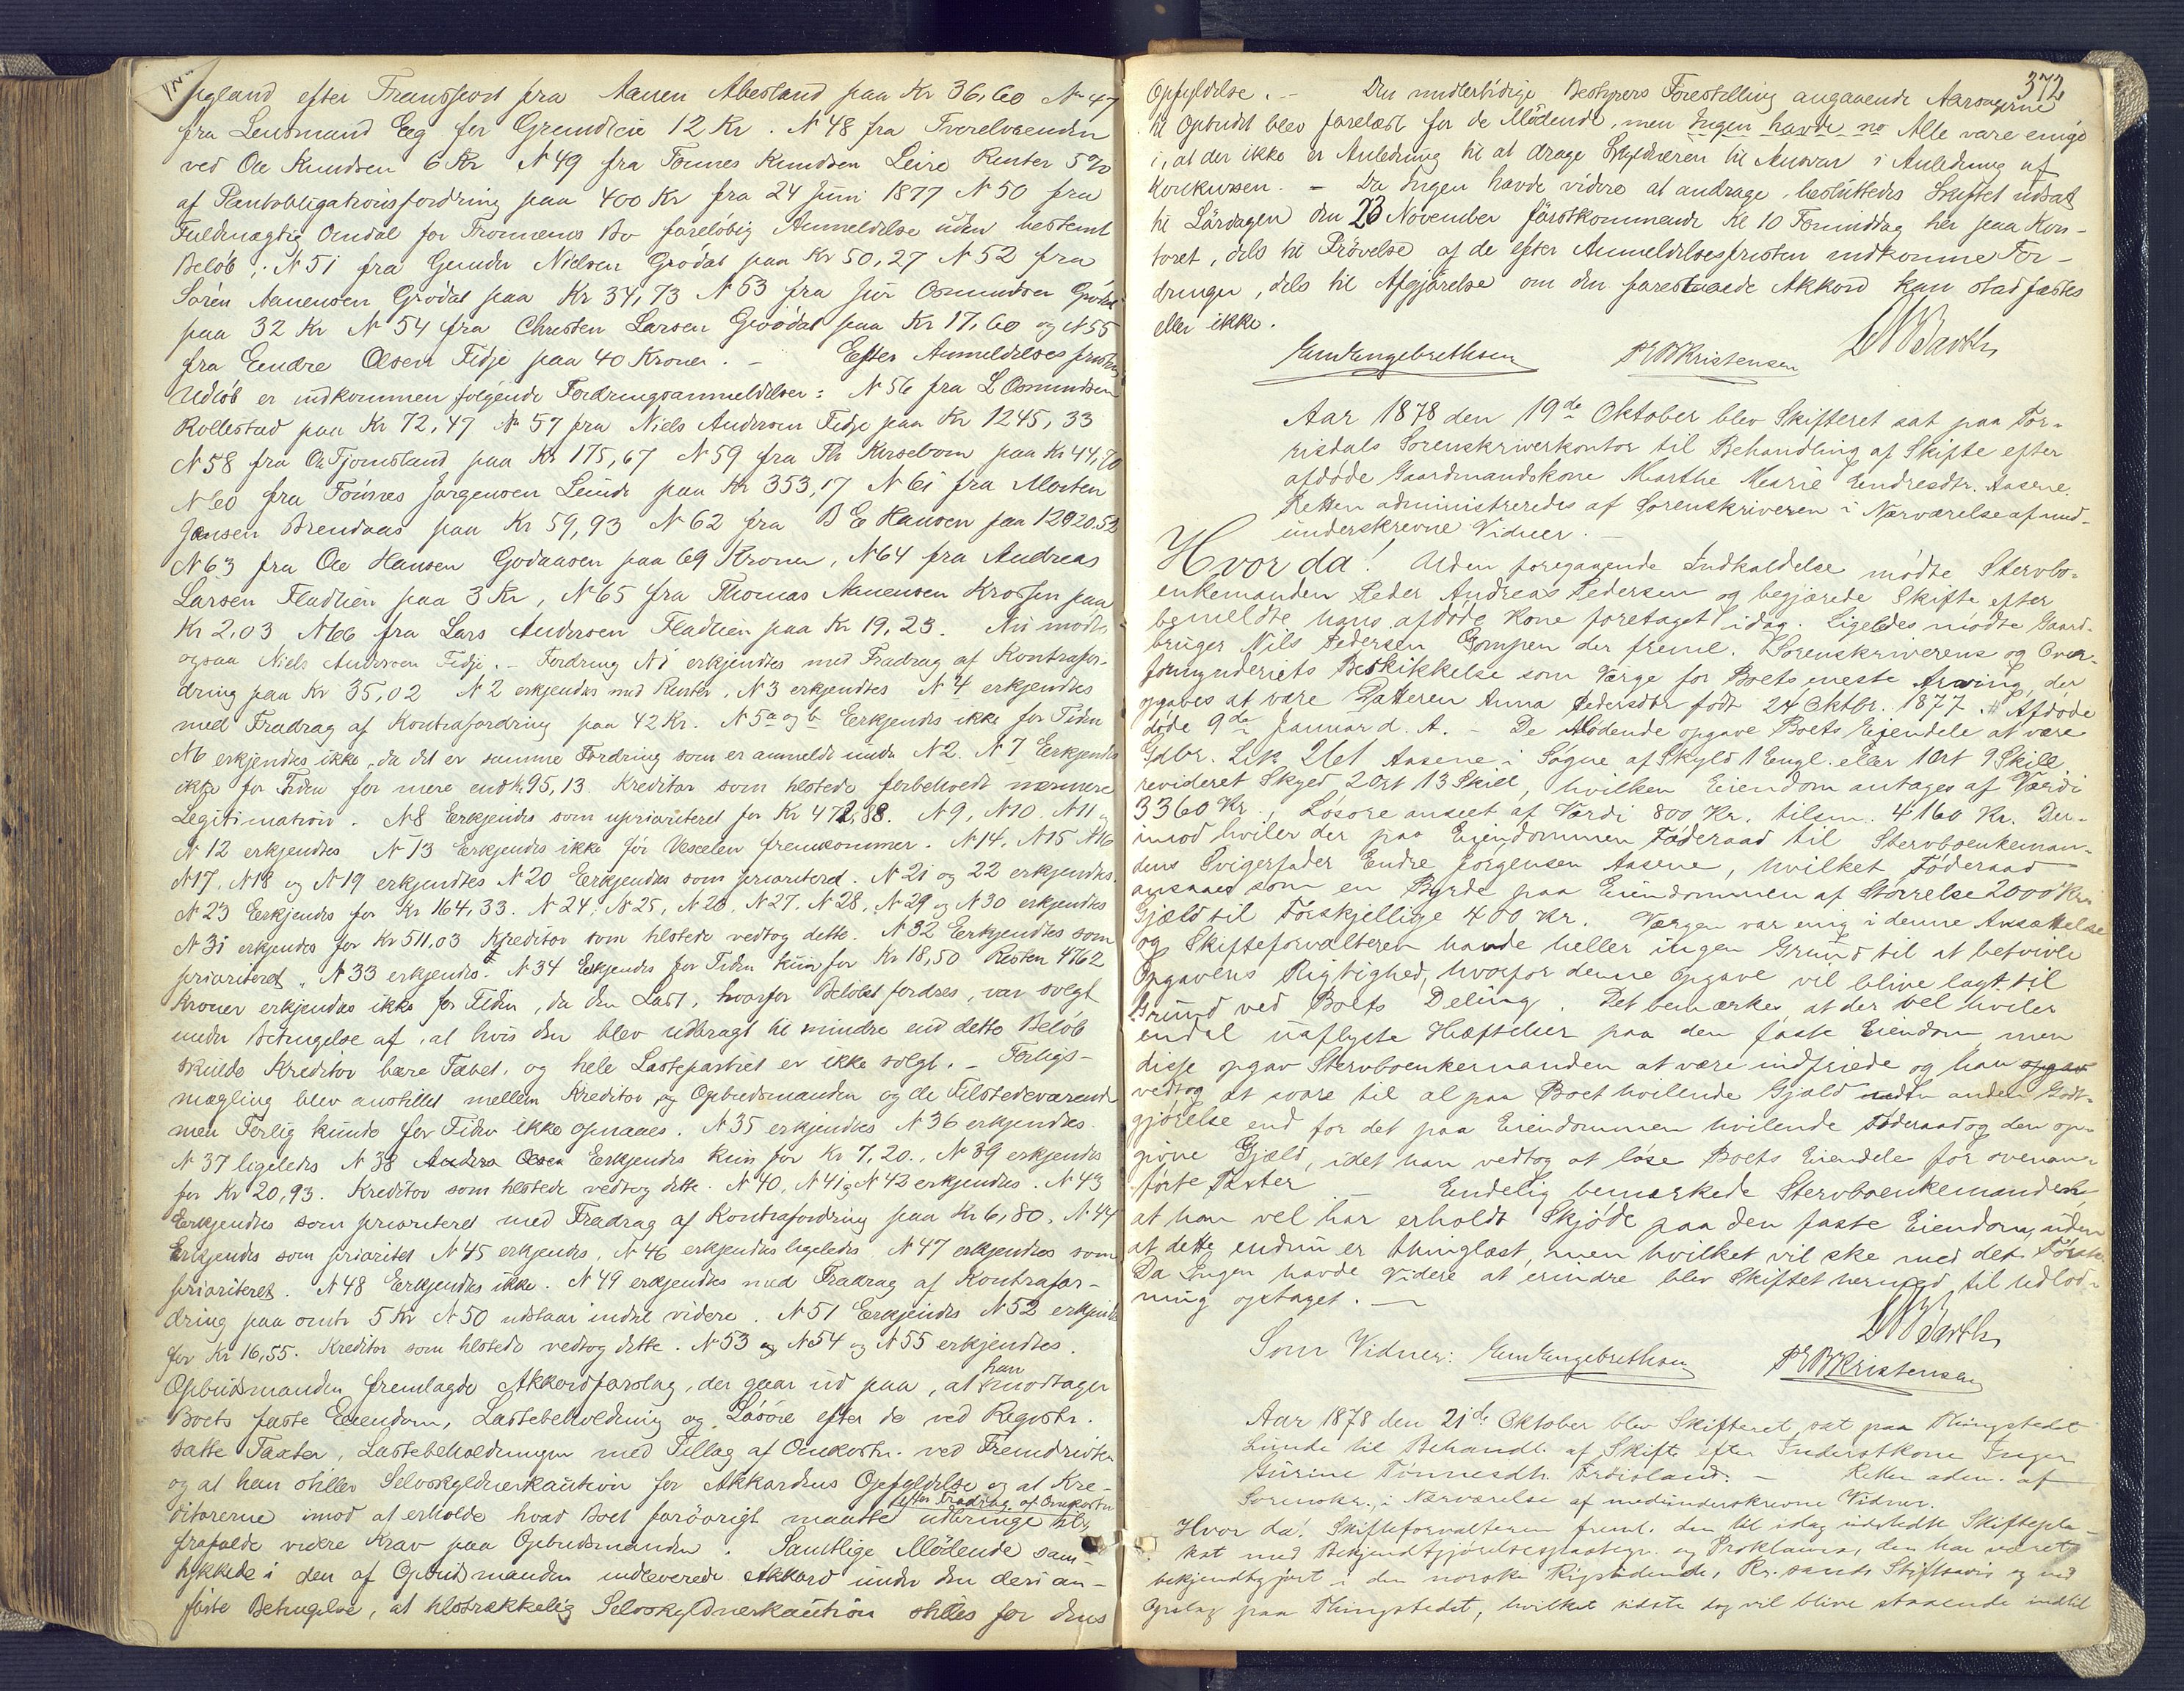 ugland efter Transport fra Aanen Abesland paa Kr 36,60 No 47
fra Lensmand Eeg for Grundleie 12 Kr. N 48 fra Tverelvaenden
ved Ole Knudsen 6 Kr N 49 fra Tønnes Knudsen Leire Renter 5%
af Pantobligationsfordring paa 400 Kr fra 24 Juni 1877 N 50 fra
Fuldmægtig Omdal for Tronnems Bo foreløbig Anmeldelse uden bestemt
Beløb, N 51 fra Gunder Nielsen Grødat paa Kr 50,27 N 52 fra
Søren Aanensen Grødat paa Kr 34,73 N 53 fra Osmundsen
paa 32 Kr N 54 fra Christen Larsen paa Kr 17,60 og N 55
fra Endre Olsen Fidje paa 40 Kroner. – Efter Anmeldelsesfristens
Udløb er indkommen følgende Fordringsanmeldelser: N 56 fra L Osmundsen
Rollestad paa Kr 72,47 No 57 fra Niels Andersen Fidje paa Kr 1245,33
N 58 fra O. Tjomsland paa Kr 175,67 N 59 fra Th Kirsebom paa Kr 44,70
N 60 fra Tønnes Jørgensen Lunde paa Kr 353,17 N 61 fra Morten
Jensen Brendaas paa Kr 59,93 N 62 fra B E Hansen paa 12920.52
N 63 fra Ole Hansen Godaasen paa 69 Kroner, N 64 fra Andreas
Larsen Fladlien paa 3 Kr, N 65 fra Thomas Aanensen paa
Kr 2,03 N 66 fra Lars Andersen Fladlien paa Kr 19,23. Nu mødte
ogsaa Niels Andersen Fidje. – Fordring N 1 erkjendtes med Fradrag af Kontrafor-
dring paa Kr 35,02 N 2 erkjendes med Renter, N 3 erkjendtes N 4 erkjendtes
med Fradrag af Kontrafordring paa 42 Kr. N 5 a og b Erkjendes ikke for Tiden
N 6 erkjendtes ikke, da det er samme Fordring som er anmeldt under N 2. N 7 Erkjendes
ikke for Tiden for mere end Kr 95,13. Kreditor som tilstede forbeholdt nærmere
Legitimation. N 8 Erkjendes som uprioriteret for Kr 472,88. N 9, N 10. N 11 og
N 12 erkjendtes N 13 Erkjendes ikke før Vexelen fremkommer. N 14, N 15 N 16
N 17, N 18 og N 19 erkjendtes N 20 Erkjendes som prioriteret. N 21 og 22 erkjendtes.
N 23 Erkjendes for Kr 164,33. N 24, N 25, N 26, N 27, N 28, N 29 og N 30 erkjendtes
N 31 erkjendes for Kr 511,03 Kreditor som tilstede vedtog dette. N 32 Erkjendtes som
prioriteret, N 33 erkjendtes. N 34 Erkjendes for Tiden kun for Kr 18,50 Resten 4762
Kroner erkjendes ikke for Tiden, da den Last, hvorfor Beløbet fordres, var solgt
under Betingelse af, at hvis den blev udbragt til mindre end dette Beløb
skulde Kreditor bære Tabet, og hele Lastepartiet er ikke solgt. – Forligs-
mægling blev anstillet mellem Kreditor og Opbudsmanden og de Tilstedeværende
men Forlig kunde for Tiden ikke opnaaes. N 35 erkjendtes N 36 erkjendtes.
N 37 ligeledes N 38 Anders Olsen Erkjendes kun for Kr 7,20., N 39 erkjendes
for Kr 20,93. Kreditor som tilstede vedtog dette. N 40, N 41 og N 42 erkjendtes. N 43
Erkjendtes som prioriteret med Fradrag af Kontrafordring paa Kr 6,80, N 44
Erkjendes som prioritet N 45 erkjendes, N 46 erkjendtes ligeledes N 47 erkjendtes som
prioriteret. N 48 Erkjendtes ikke. N 49 erkjendtes med Fradrag af Kontrafor-
dring paa omtr 5 Kr N 50 udstaar indtil videre. N 51 Erkjendes N 52 erkjendes
for Kr 16,55. Kreditor som tilstede vedtog dette. N 53 og N 54 og N 55 erkjendtes.
Opbudsmanden fremlagde Akkordforslag, der gaar ud paa, at han modtager
Boets faste Eiendom, Lastebeholdning og Løsøre efter de ved Registr.
satte Taxter, Lastebeholdningen med Tillæg af Omkostn. ved Fremdriften
og at han stiller Selvskyldnerkaution for Akkordens Opfyldelse og at Kre-
ditorerne imod at erholde hvad Boet forøvrigt maatte udbringe til, efter Fradrag af Omkostn
frafalde videre Krav paa Opbudsmanden. Samtlige Mødende sam-
tykkede i den af Opbudsmanden indleverede Akkord under den deri an-
førte Betingelse, at tilstrækkelig Selvskyldnerkaution stilles for dens
372
Opfyldelse. – Den midlertidige Bestyrers Forestilling angaaende Aarsagerne
til Opbudet blev forelæst for de Mødende, men Ingen havde no Alle vare enige
i, at der ikke er Anledning til at drage Skyldneren til Ansvar i Anledning af
Konkursen. – Da Ingen havde videre at andrage, besluttedes Skiftet udsat
til Lørdagen den 23 November førstkommende Kl 10 Formiddag her paa Kon-
toret, dels til Prøvelse af de efter Anmeldelsesfristen indkomne For-
dringer, dels til Afgjørelse om den foreslaaede Akkord kan stadfæstes
eller ikke.
Barth
EmEngebrethsen P E B Kristensen
Aar 1878 den 19de Oktober blev Skifteret sat paa Tor-
risdals Sorenskriverkontor til Behandling af Skifte efter
afdøde Gaardmandskone Marthe Marie Endresdtr. Aasene.
Retten administreredes af Sorenskriveren i Nærværelse af med-
underskrevne Vidner. –
Hvor da! Uden foregaaende Indkaldelse mødte Stervbo-
enkemanden Peder Andreas Pedersen og begjærede Skifte efter
bemeldte hans afdøde Kone foretaget idag. Ligeledes mødte Gaard-
bruger Nils Pedersen Gompen der freml. Sorenskriverens og Over-
formynderiets Beskikkelse som Værge for Boets eneste Arving, der
opgaves at være Datteren Anna Pedersdtr født 24 Oktbr. 1877. Afdøde
døde 9de Januar d. A. – De Mødende opgave Boets Eiendele at være
Gdbr. Lpk 261 Aasene i Søgne af Skyld 1 Engl. eller 1 Ort 9 Skill
revideret Skyld 2 Ort 13 Skill, hvilken Eiendom antages af Værdi
3360 Kr., Løsøre anseet af Værdi 800 Kr. tilsm. 4160 Kr. Der-
imod hviler der paa Eiendommen Føderaad til Stervboenkeman-
dens Svigerfader Endre Jørgensen Aasene, hvilket Føderaad
ansaaes som en Byrde paa Eiendommen af Størrelse 2000 Kr.
Gjæld til Forskjellige 400 Kr. Værgen var enig i denne Ansættelse
og Skifteforvalteren havde heller ingen Grund til at betvivle
Opgavens Rigtighed, hvorfor denne Opgave vil blive lagt til
Grund ved Boets Deling. Det bemærkes, at der vel hviler
endel uaflyste Hæftelser paa den faste Eiendom, men
disse opgav Stervboenkemanden at være indfriede og han opgav
vedtog at svare til al paa Boet hvilende Gjæld uden anden Godt-
gjørelse end for det paa Eiendommen hvilende Føderaad og den op-
givne Gjæld, idet han vedtog at løse Boets Eiendele for ovenan-
førte Taxter – Endelig bemærkede Stervboenkemanden
at han vel har erholdt Skjøde paa den faste Eiendom, uden
at dette endnu er thinglæst, men hvilket vil ske med det Første
Da Ingen havde Videre at erindre blev Skiftet hermed til Udlod-
ning optaget. –
Barth
Som Vidner: EmEngebrethsen P E B Kristensen
Aar 1878 den 21de Oktober blev Skifteret sat paa Thingstedet
Lunde til Behandl. af Skifte efter Inderstkone Inger
Gurine Tønnesdtr. Frøisland. – Retten adm. af
Sorenskr. i Nærværelse af medunderskrevne Vidner.
Hvor da! Skifteforvalteren freml. den til idag udstedte Skiftepla-
kat med Bekjendtgjørelsespaategn. og Proklama, den har været
bekjendtgjort i den norske Rigstidende, Kr.sands Stiftsavis og ved
Opslag paa Thingstedet, hvilket sidste dog vil blive staaende indtil